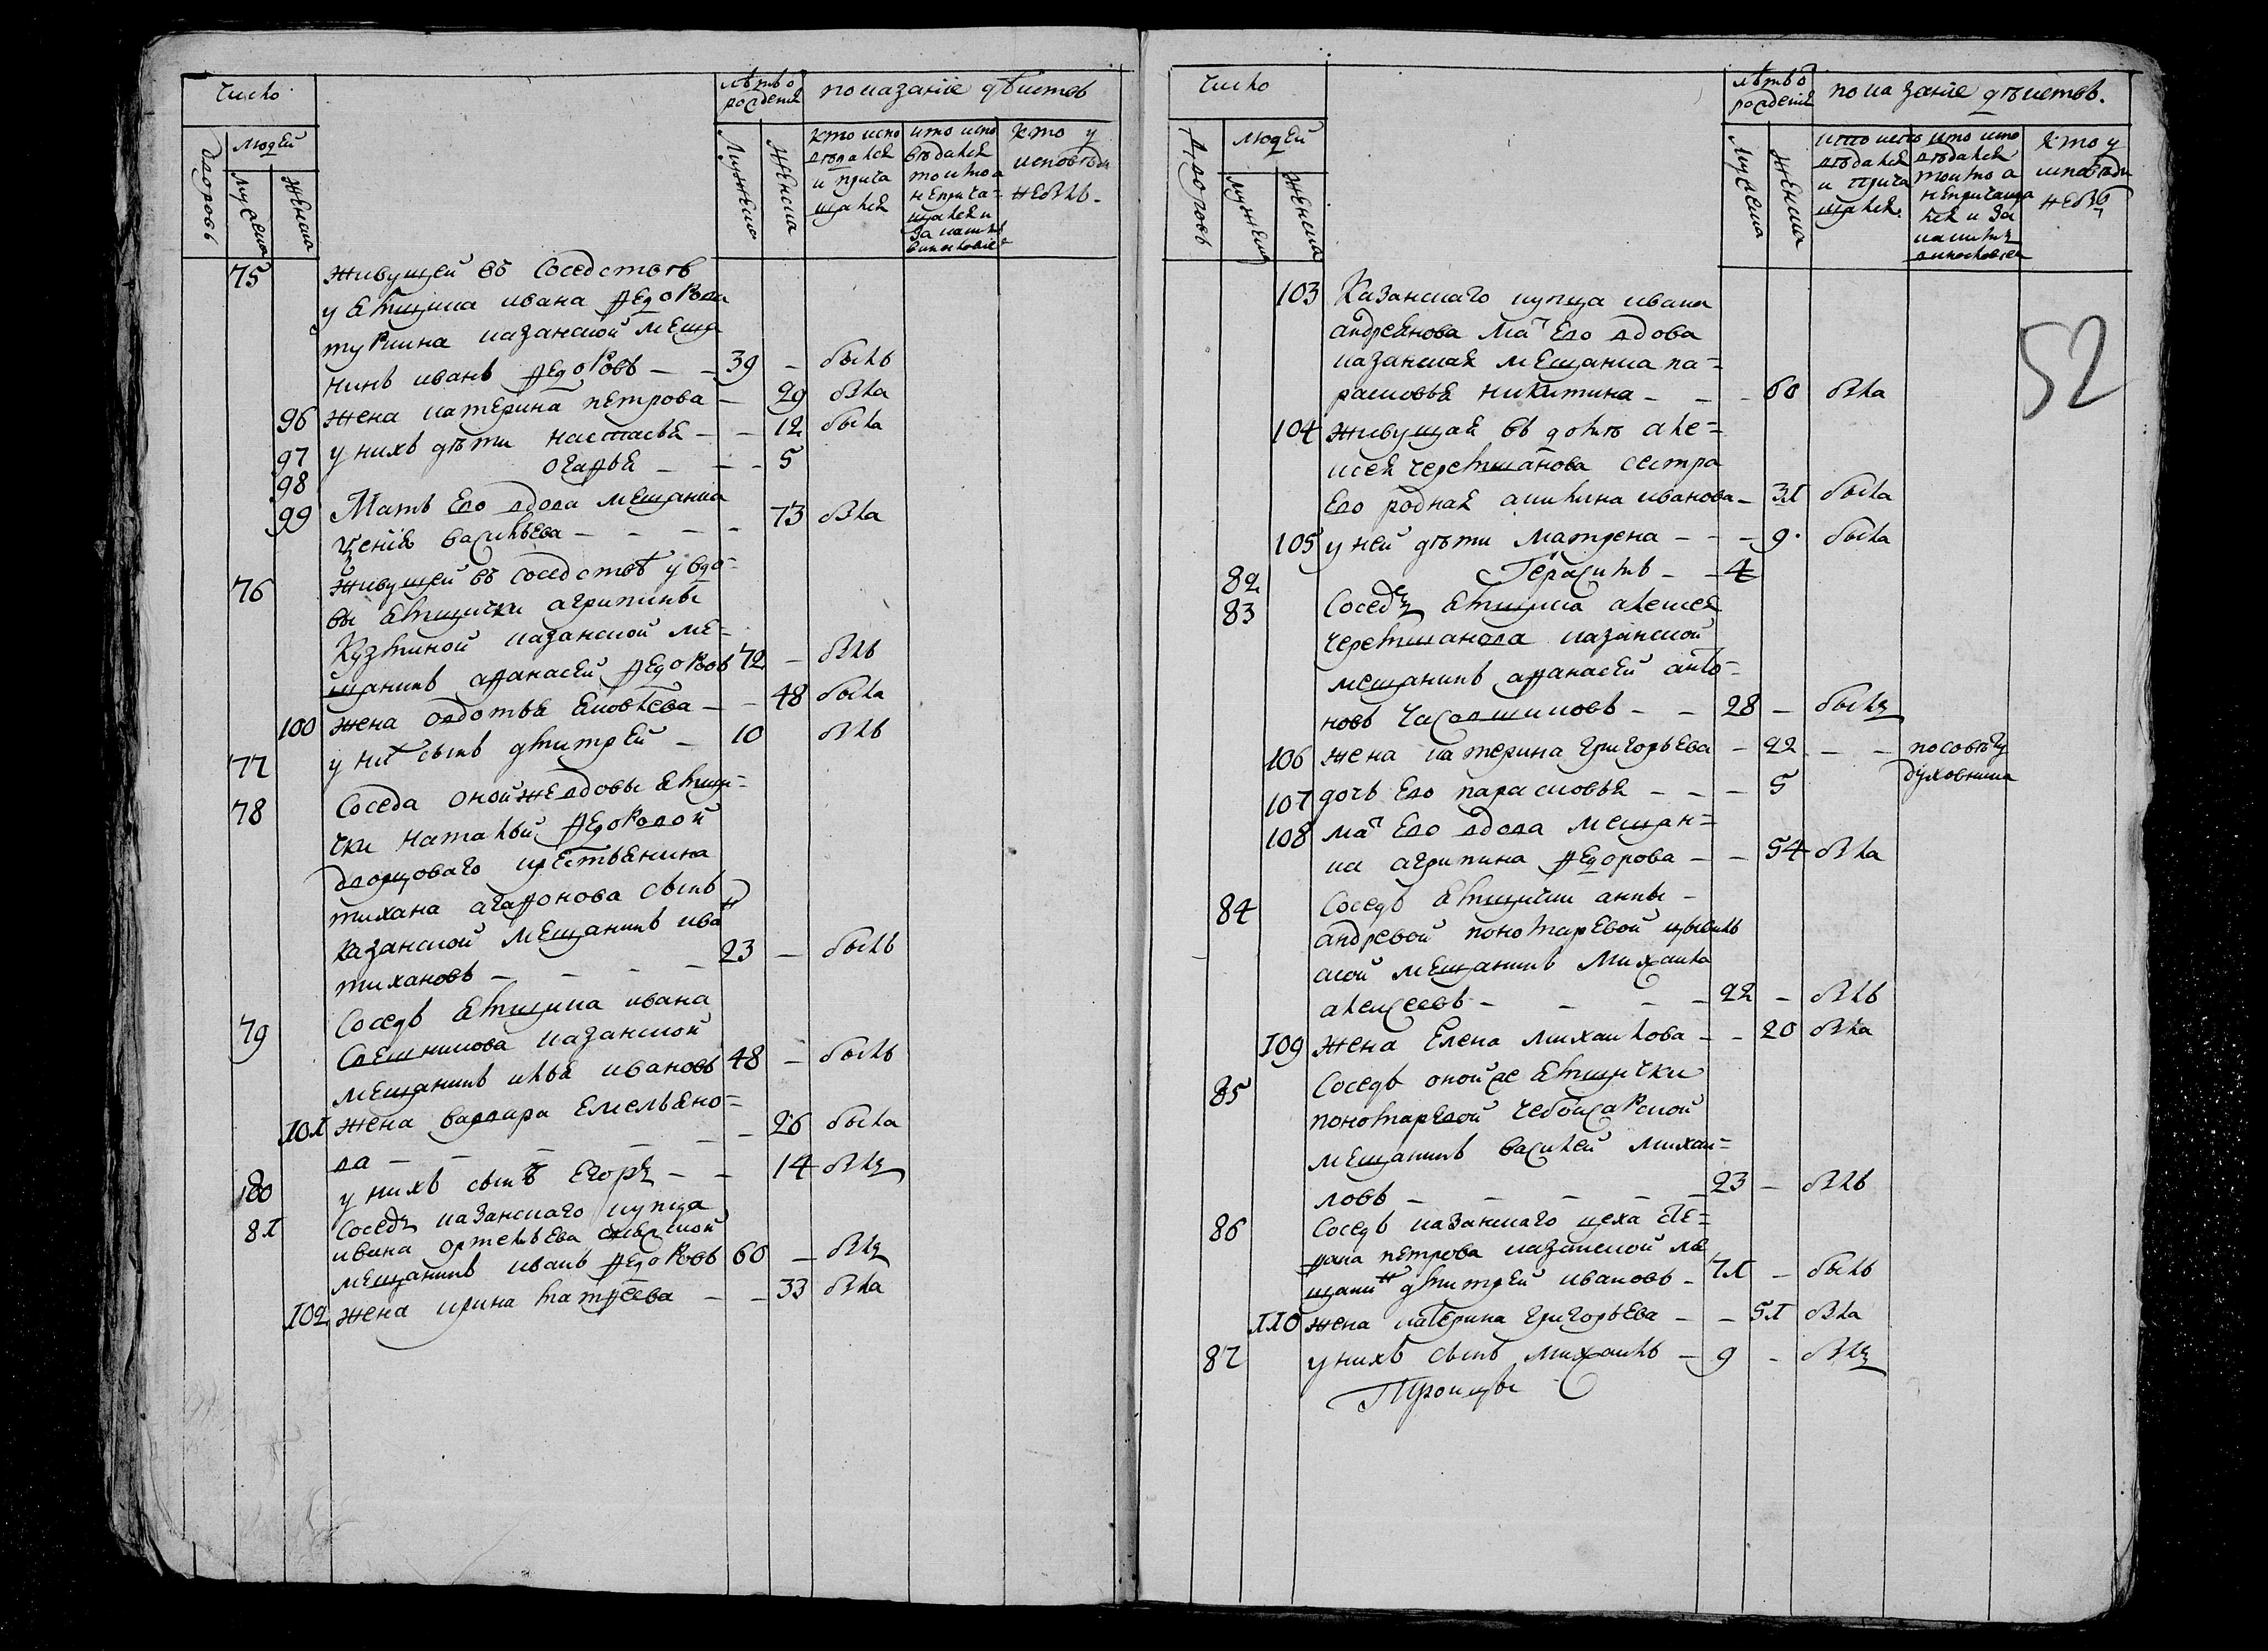 Число
лѣтъ ѿ рожденія
показаніе дѣистов
Дворовъ
людей
мужеска
женска
мужеска
женска
кто испо
вѣдался
и прича
щался
кто испо
вѣдался
токмо а
неприча=
щался и
за какимъ
винословіемъ
кто у
исповѣди
небылъ
75 живущей въ соседствѣ
у ямщика ивана федорова
туркина казанской меща
нинъ иванъ федоровъ – 39 – былъ
96 жена катерина петрова – 29 была
97 у нихъ дѣти настасья – – 12 была
98 огафья – – – 5
99 Мать ево вдова мещанка
васильева – – – – 73 была
76 живущей въ соседствѣ у вдо=
вы ямщички агрипины
Кузминой казанской ме=
щанинъ афанасей федоровъ 72 – былъ
100 жена овдотья яковлева – – 48 была
77 у них сынъ дмитрей – 10 былъ
78 Соседа оной же вдовы ямщи=
чки натальи федоровой
дворцоваго крестьянина
тихана агафонова сынъ
казанской мещанинъ иван
тихановъ – – – – 23 – былъ
79 Соседъ ямщика ивана
казанской
мещанинъ илья ивановъ 48 – былъ
101 жена варвара емельяно=
ва – – – – – – 26 была
80 у нихъ сынъ егоръ – – 14 былъ
81 Соседъ казанскаго купца
ивана ортемьева
мещанинъ иванъ федоровъ 60 – былъ
102 жена ирина матфеева – – 33 была
Число
лѣтъ ѿ рожденія
показаніе дѣистов.
Дворовъ
людей
мужеска
женска
мужеска
женска
кто испо
вѣдался
и прича
щался.
кто испо
вѣдался
токмо а
непричаща
лся и за
какимъ
винословіем
кто у
исповѣди
небылъ
52
103 Казанскаго купца ивана
андреянова мат ево вдова
казанская мещанка па=
расковья никитина – – – 60 была
104 живущая въ домѣ але=
ксея черемшанова сестра
ево родная акилина иванова – 31 была
105 у ней дѣти матрена – – – 9. была
82 Герасимъ – – 4
83 Соседъ ямщика алексея
черемшанова казанской
мещанинъ афанасей анто=
новъ Часовшиковъ – – 28 – былъ
106 жена катерина григорьева – 22 – – по совѣту
духовника
107 дочь ево парасковья – – – 5
108 мат ево вдова мещан=
ка агрипина федорова – – 54 была
84 Соседъ ямщички анны –
андревой пономаревой цывиль
ской мещанинъ михаила
алексеевъ – – – – 22 – былъ
109 жена Елена михаилова – – 20 была
85 Соседъ оной же ямщички
пономаревой чебоксарской
мещанинъ василей михаи=
ловъ – – – – – 23 – былъ
86 Соседъ казанскаго цеха сте=
фана петрова казанской ме
щанин дмитрей ивановъ – 71 – былъ
110 жена катерина григорьева – – 51 была
87 у нихъ сынъ михаилъ – 9 – былъ